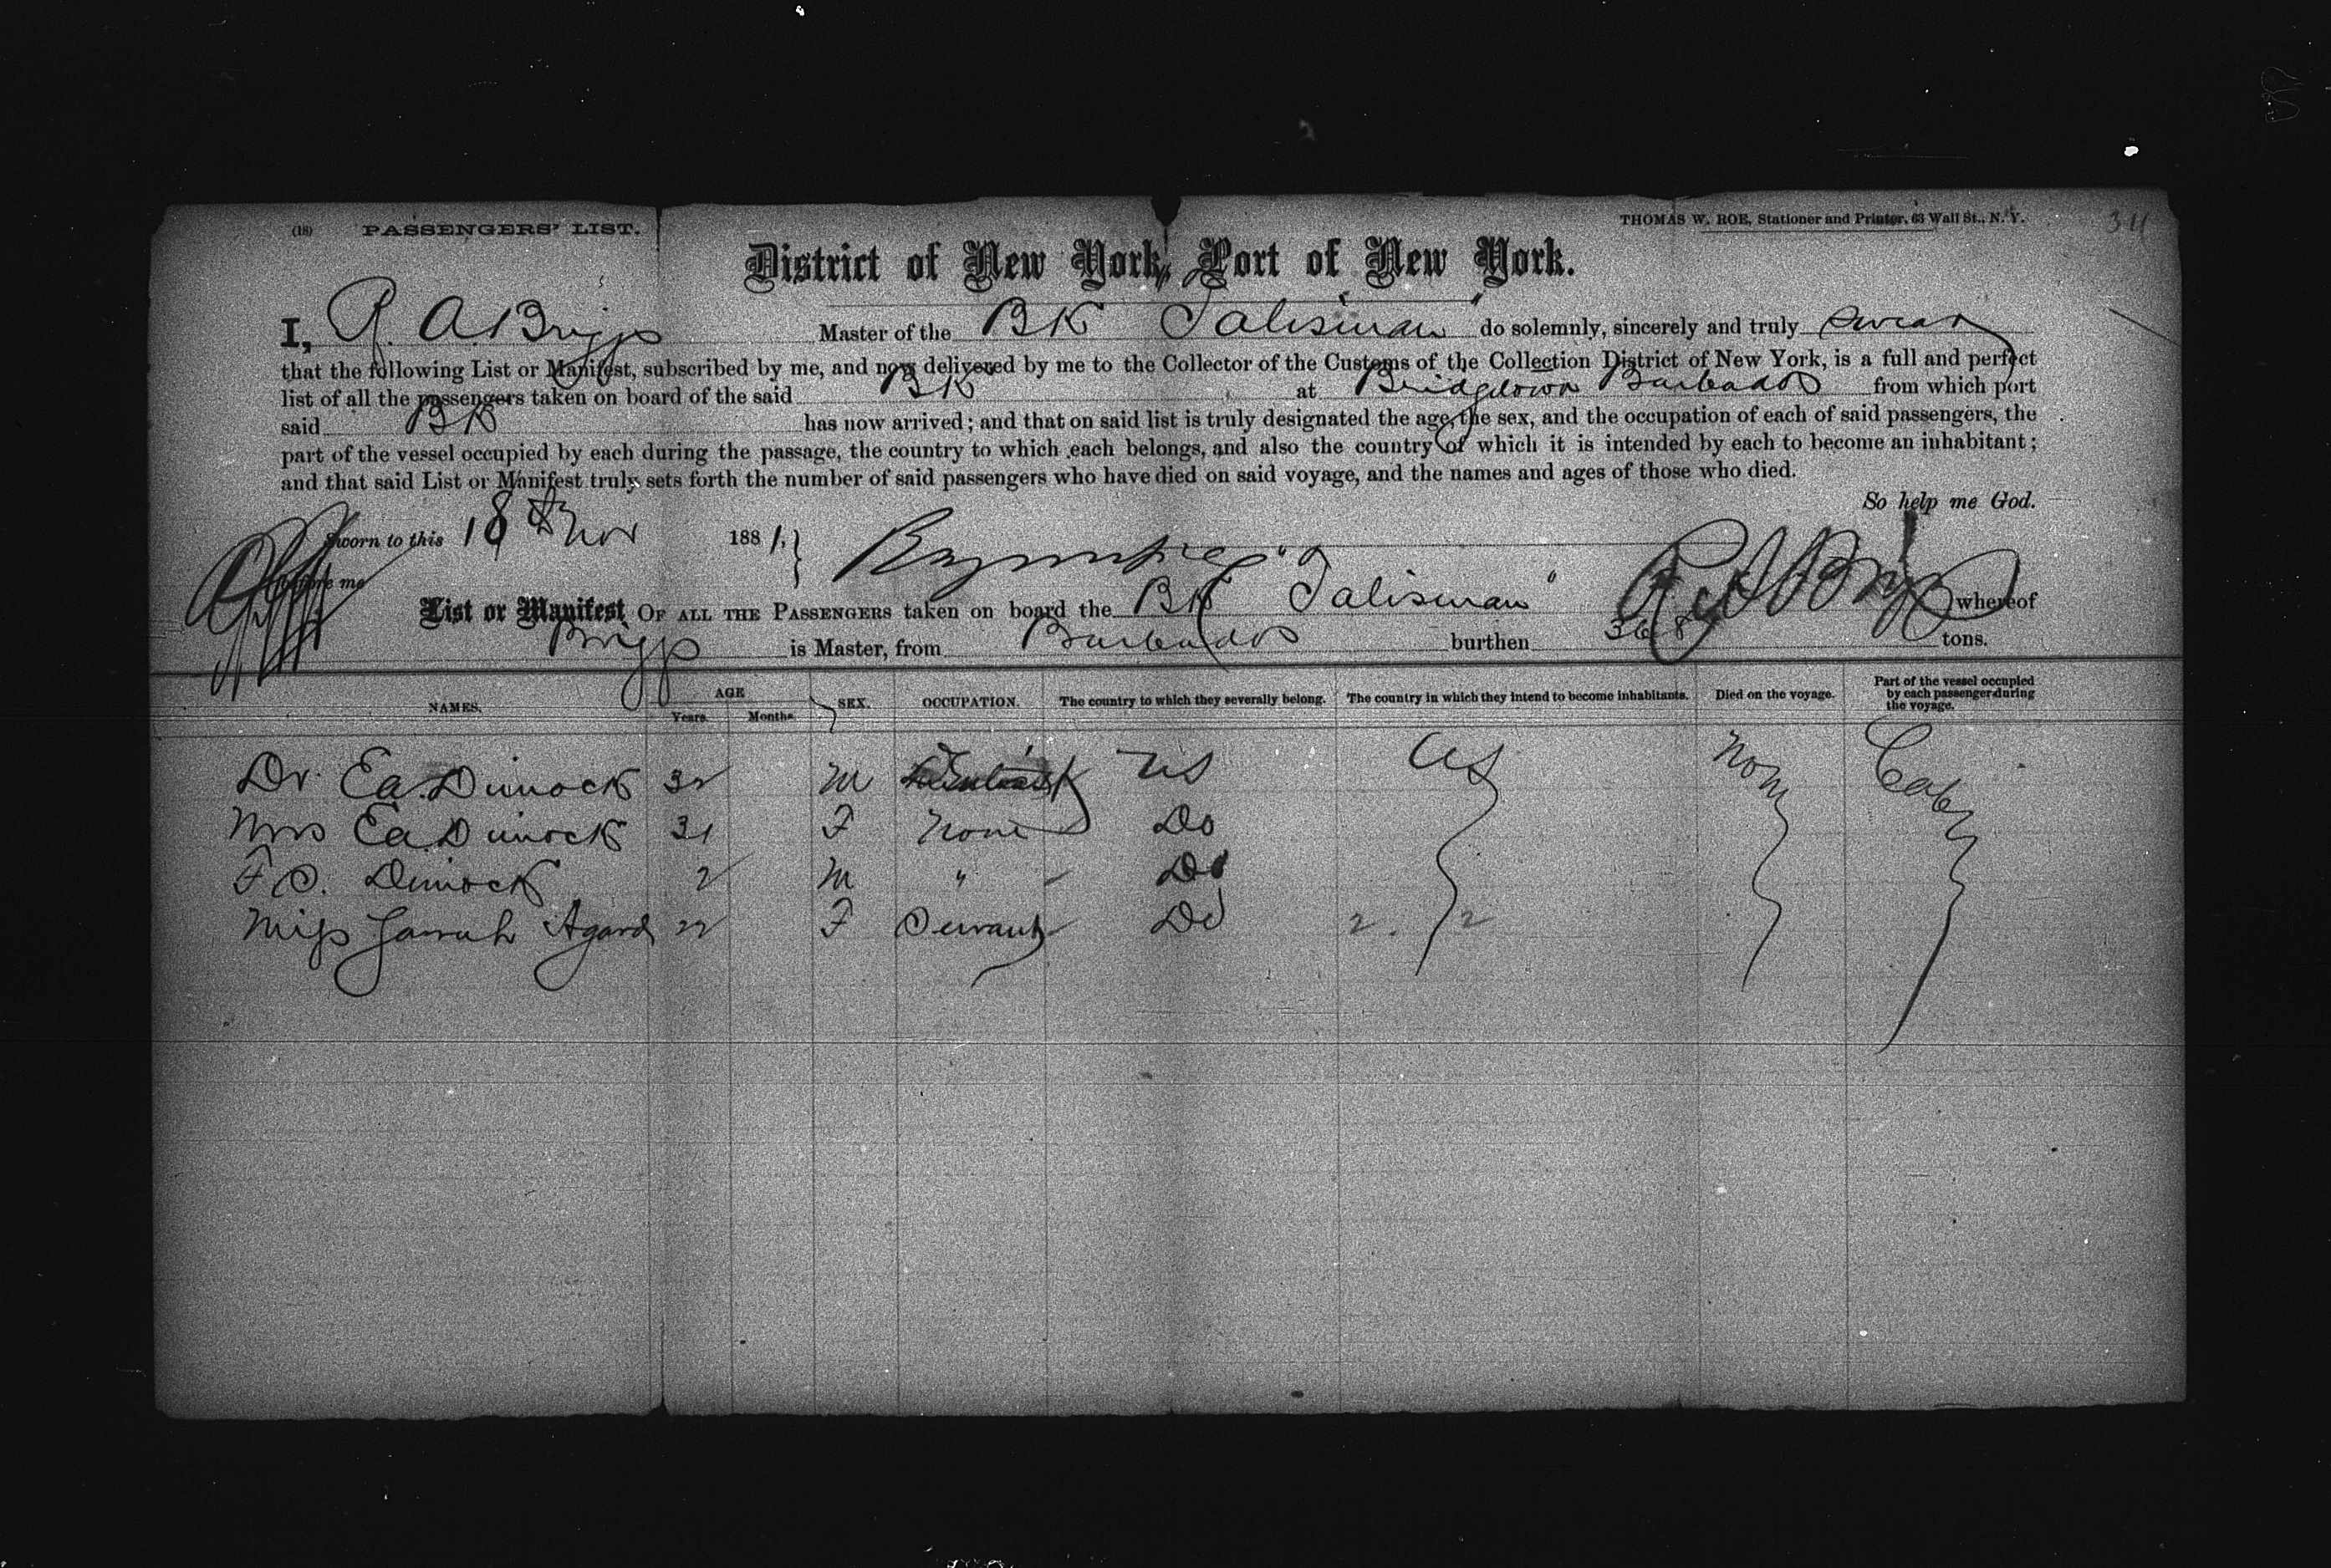 (18) PASSENGERS' LIST.
THOMAS W. ROE, Stationer and Printer, 63 Wall St., N. Y.
34
District of New York, Port of New York.
I, R. A. Briggs Master of the BK "Talisman" do solemnly, sincerely and truly swear
that the following List or Manifest, subscribed by me, and now delivered by me to the Collector of the Customs of the Collection District of New York, is a full and perfect
list of all the passengers taken on board of the said BK at Bridgetown Barbados from which port
said BK has now arrived; and that on said list is truly designated the age, the sex, and the occupation of each of said passengers, the
part of the vessel occupied by each during the passage, the country to which each belongs, and also the country of which it is intended by each to become an inhabitant;
and that said List or Manifest truly sets forth the number of said passengers who have died on said voyage, and the names and ages of those who died.
So help me God.
Sworn to this 18th Nov 1881,
before me R A Briggs
List or Manifest OF ALL THE PASSENGERS taken on board the BK "Talisman" whereof
Briggs is Master, from Barbados burthen tons.
NAMES. AGE Years. Months. SEX. OCCUPATION. The country to which they severally belong. The country in which they intend to become inhabitants. Died on the voyage. Part of the vessel occupied by each passenger during the voyage.
Dr. E a. Dimock 32 M US US None Cabin
Mrs E a. Dimock 31 F None Do
F S. Dimock 2 M " Do
Miss Sarrah Agard 22 F Servant Do 2. 2